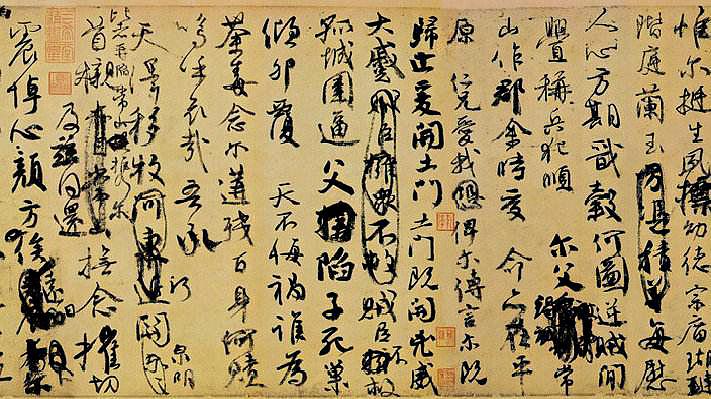 惟爾挺生夙標幼德宗廟瑚璉
階庭蘭玉方憑積善每慰
人心方期戩穀何圖逆賊閒
釁稱兵犯順爾父竭誠常
山作郡余時受命亦在平
原仁兄愛我俾爾傳言爾既
歸止爰開土門土門既開兇威
大蹙賊臣擁眾不救賊臣不救
孤城圍逼父陷子死巢
傾卵覆天不悔禍誰為
荼毒念爾遘殘百身何贖
嗚呼哀哉吾承
天澤移牧河東近關泉明
比者再陷常山攜爾
首櫬及茲同還撫念摧切
震悼心顏方俟遠日